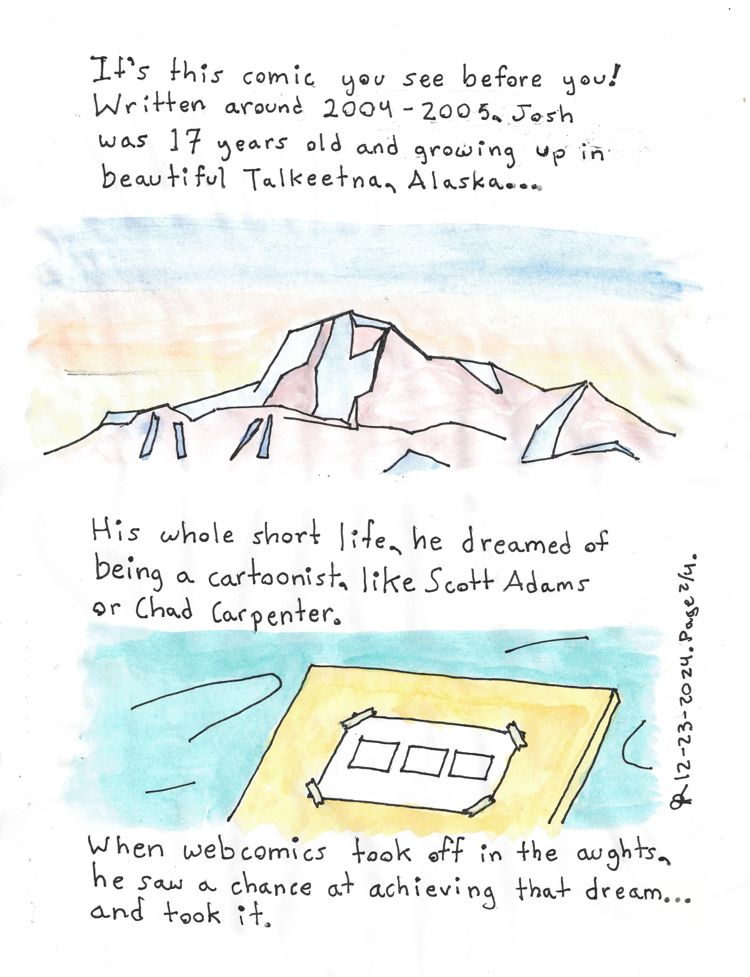 It's this comic you see before you!
Written around 2004-2005, Josh
was 17 years old and growing up in
beautiful Talkeetna, Alaska...
His whole short life, he dreamed of
being a cartoonist, like Scott Adams
or Chad Carpenter.
When webcomics took off in the aughts,
he saw a chance at achieving that dream...
and took it.
12-23-2024. Page 2/4.